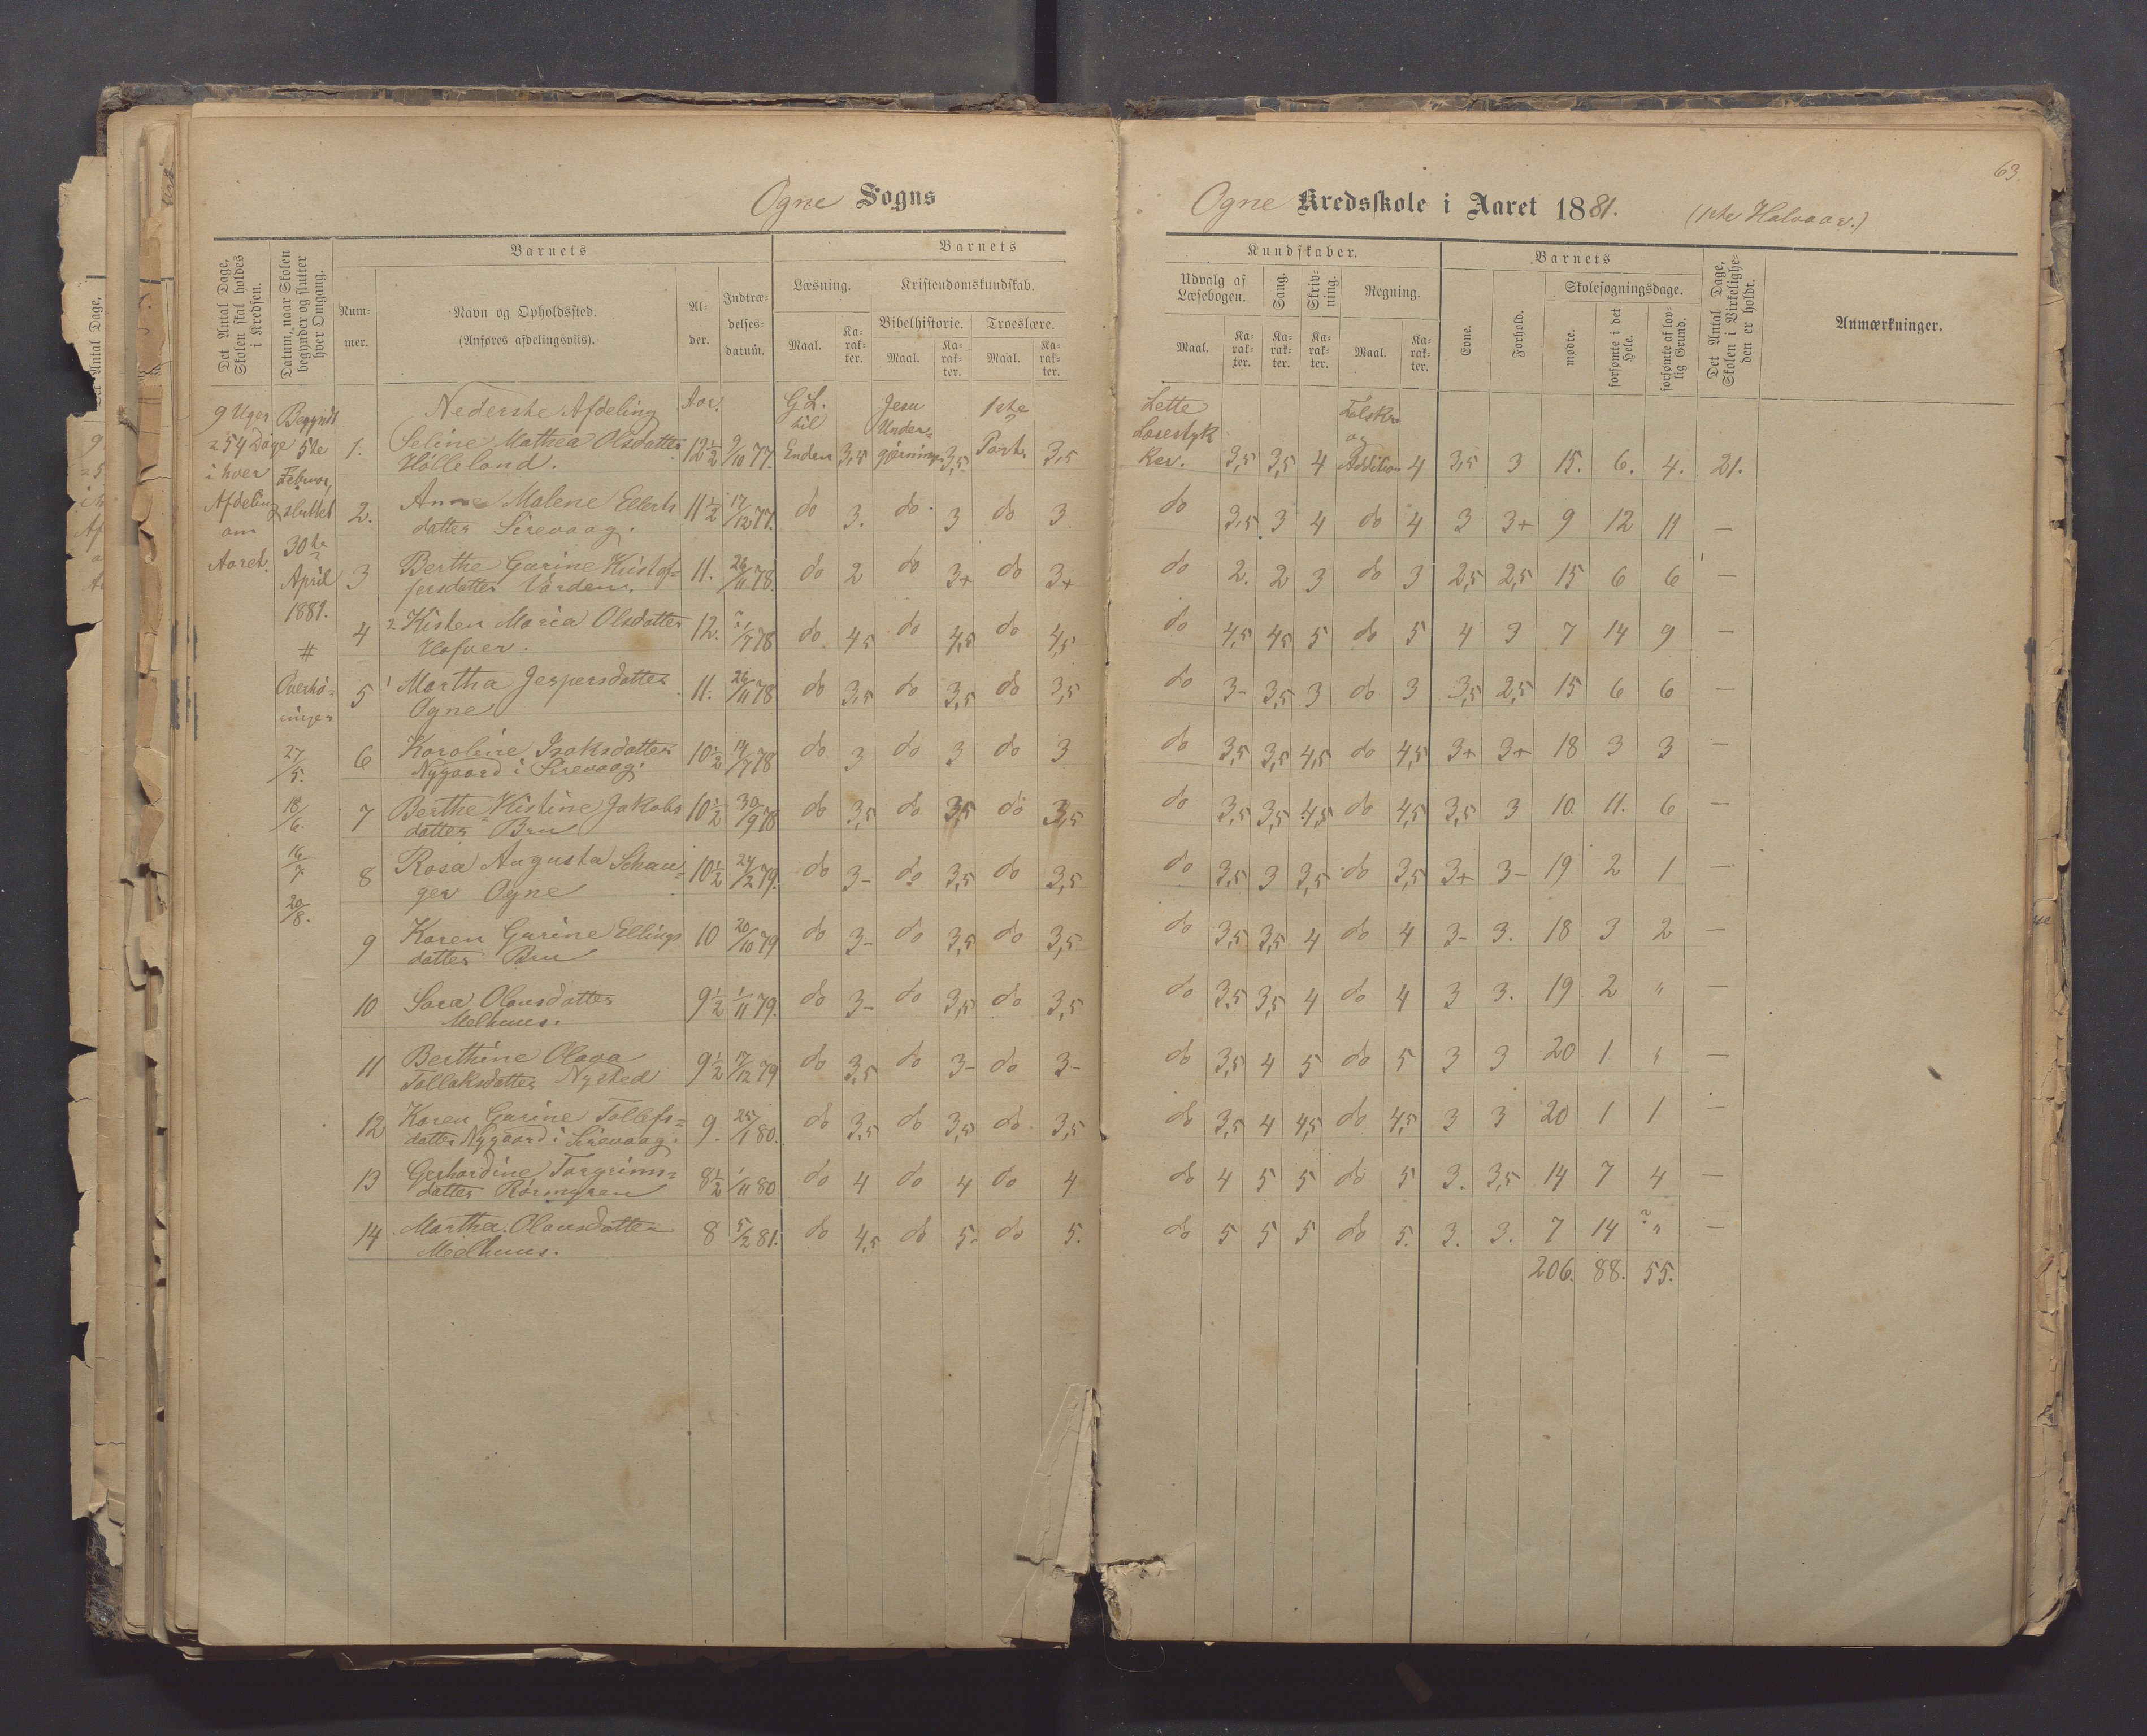 63.
Ogne Sogns
Ogne Kredsskole i Aaret 1881. (1ste Halvaar.)
Det Antal Dage, Skolen skal holdes i Kredsen.
Datum, naar Skolen begynder og slutter hver Omgang.
Barnets
Nummer.
Navn og Opholdssted.
(Anføres afdelingsviis).
Alder.
Indtrædelsesdatum.
Barnets
Læsning.
Maal.
Karakter.
Kristendomskundskab.
Bibelhistorie.
Maal.
Karakter.
Troeslære.
Maal.
Karakter.
Kundskaber.
Udvalg af Læsebogen.
Maal.
Karakter.
Sang.
Karakter.
Skrivning.
Karakter.
Regning.
Maal.
Karakter.
Barnets
Evne.
Forhold.
Skolesøgningsdage.
mødte.
forsømte i det Hele.
forsømte af lovlig Grund.
Det Antal Dage, Skolen i Virkeligheden er holdt.
Anmærkninger.
9 Uger
= 54 Dage
i hver
Afdeling
om
Aaret.
Begyndt
5te
Februar,
sluttet
30te
April
1881.
#
Overhøringer
27/5.
18/6.
16/7.
20/8.
Nederste Afdeling
Aar.
1. Seline Mathea Olsdatter Hølleland. 12½ 9/10 77. G L. til Enden 3,5 Jesu Undergjerninger 3,5 1ste Part. 3,5 Lette Læsestykker. 3,5 3,5 4 Talskr. og Addition 4 3,5 3 15. 6. 4. 21.
2. Anne Malene Ellertsdatter Sirevaag. 11½ 17/12 77. do 3. do 3 do 3 do 3,5 3 4 do 4 3 3+ 9 12 11 —
3 Berthe Gurine Kristoffersdatter Varden. 11. 26/11 78. do 2 do 3+ do 3+ do 2. 2 3 do 3 2,5 2,5 15 6 6 —
4 Kisten Maria Olsdatter Hafver. 12. 1/7 78 do 4,5 do 4,5 do 4,5 do 4,5 4,5 5 do 5 4 3 7 14 9 —
5 Martha Jespersdatter Ogne 11. 26/11 78 do 3,5 do 3,5 do 3,5 do 3- 3,5 3 do 3 3,5 2,5 15 6 6 —
6 Karoline Isaksdatter Nygaard i Sirevaag. 10½ 14/7 78 do 3 do 3 do 3 do 3,5 3,5 4,5 do 4,5 3+ 3+ 18 3 3 —
7 Berthe Kistine Jakobsdatter Bru 10½ 30/9 78 do 3,5 do 3,5 do 3,5 do 3,5 3,5 4,5 do 4,5 3,5 3 10 11. 6 —
8 Rosa Augusta Schanger Ogne 10½ 24/2 79. do 3- do 3,5 do 3,5 do 3,5 3 3,5 do 3,5 3+ 3- 19 2 1 —
9 Karen Gurine Ellingsdatter Bru 10 20/10 79 do 3- do 3,5 do 3,5 do 3,5 3,5 4 do 4 3- 3. 18 3 2 —
10 Sara Olausdatter Melhuus. 9½ 1/11 79. do 3- do 3,5 do 3,5 do 3,5 3,5 4 do 4 3 3. 19 2 " —
11 Berthine Olava Tollaksdatter Nysted 9½ 17/12 79 do 3,5 do 3- do 3- do 3,5 4 5 do 5 3 3 20 1 " —
12 Karen Gurine Tollefsdatter Nygaard i Sirevaag. 9. 25/1 80. do 3,5 do 3,5 do 3,5 do 3,5 4 4,5 do 4,5 3 3 20 1 1 —
13 Gerhardine Torgrimsdatter Rørmyren 8½ 1/11 80 do 4 do 4 do 4 do 4 5 5 do 5 3. 3,5 14 7 4 —
14 Martha Olausdatter Melhuus. 8 5/2 81. do 4,5 do 5- do 5. do 5 5 5 do 5. 3. 3. 7 14 ? " —
206. 88. 55.